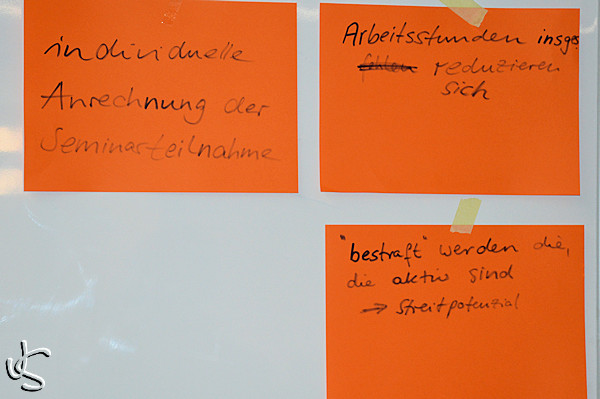 individuelle
Anrechnung der
Seminarteilnahme
Arbeitsstunden insges.
fehlen reduzieren
sich
"bestraft" werden die,
die aktiv sind
→ Streitpotenzial